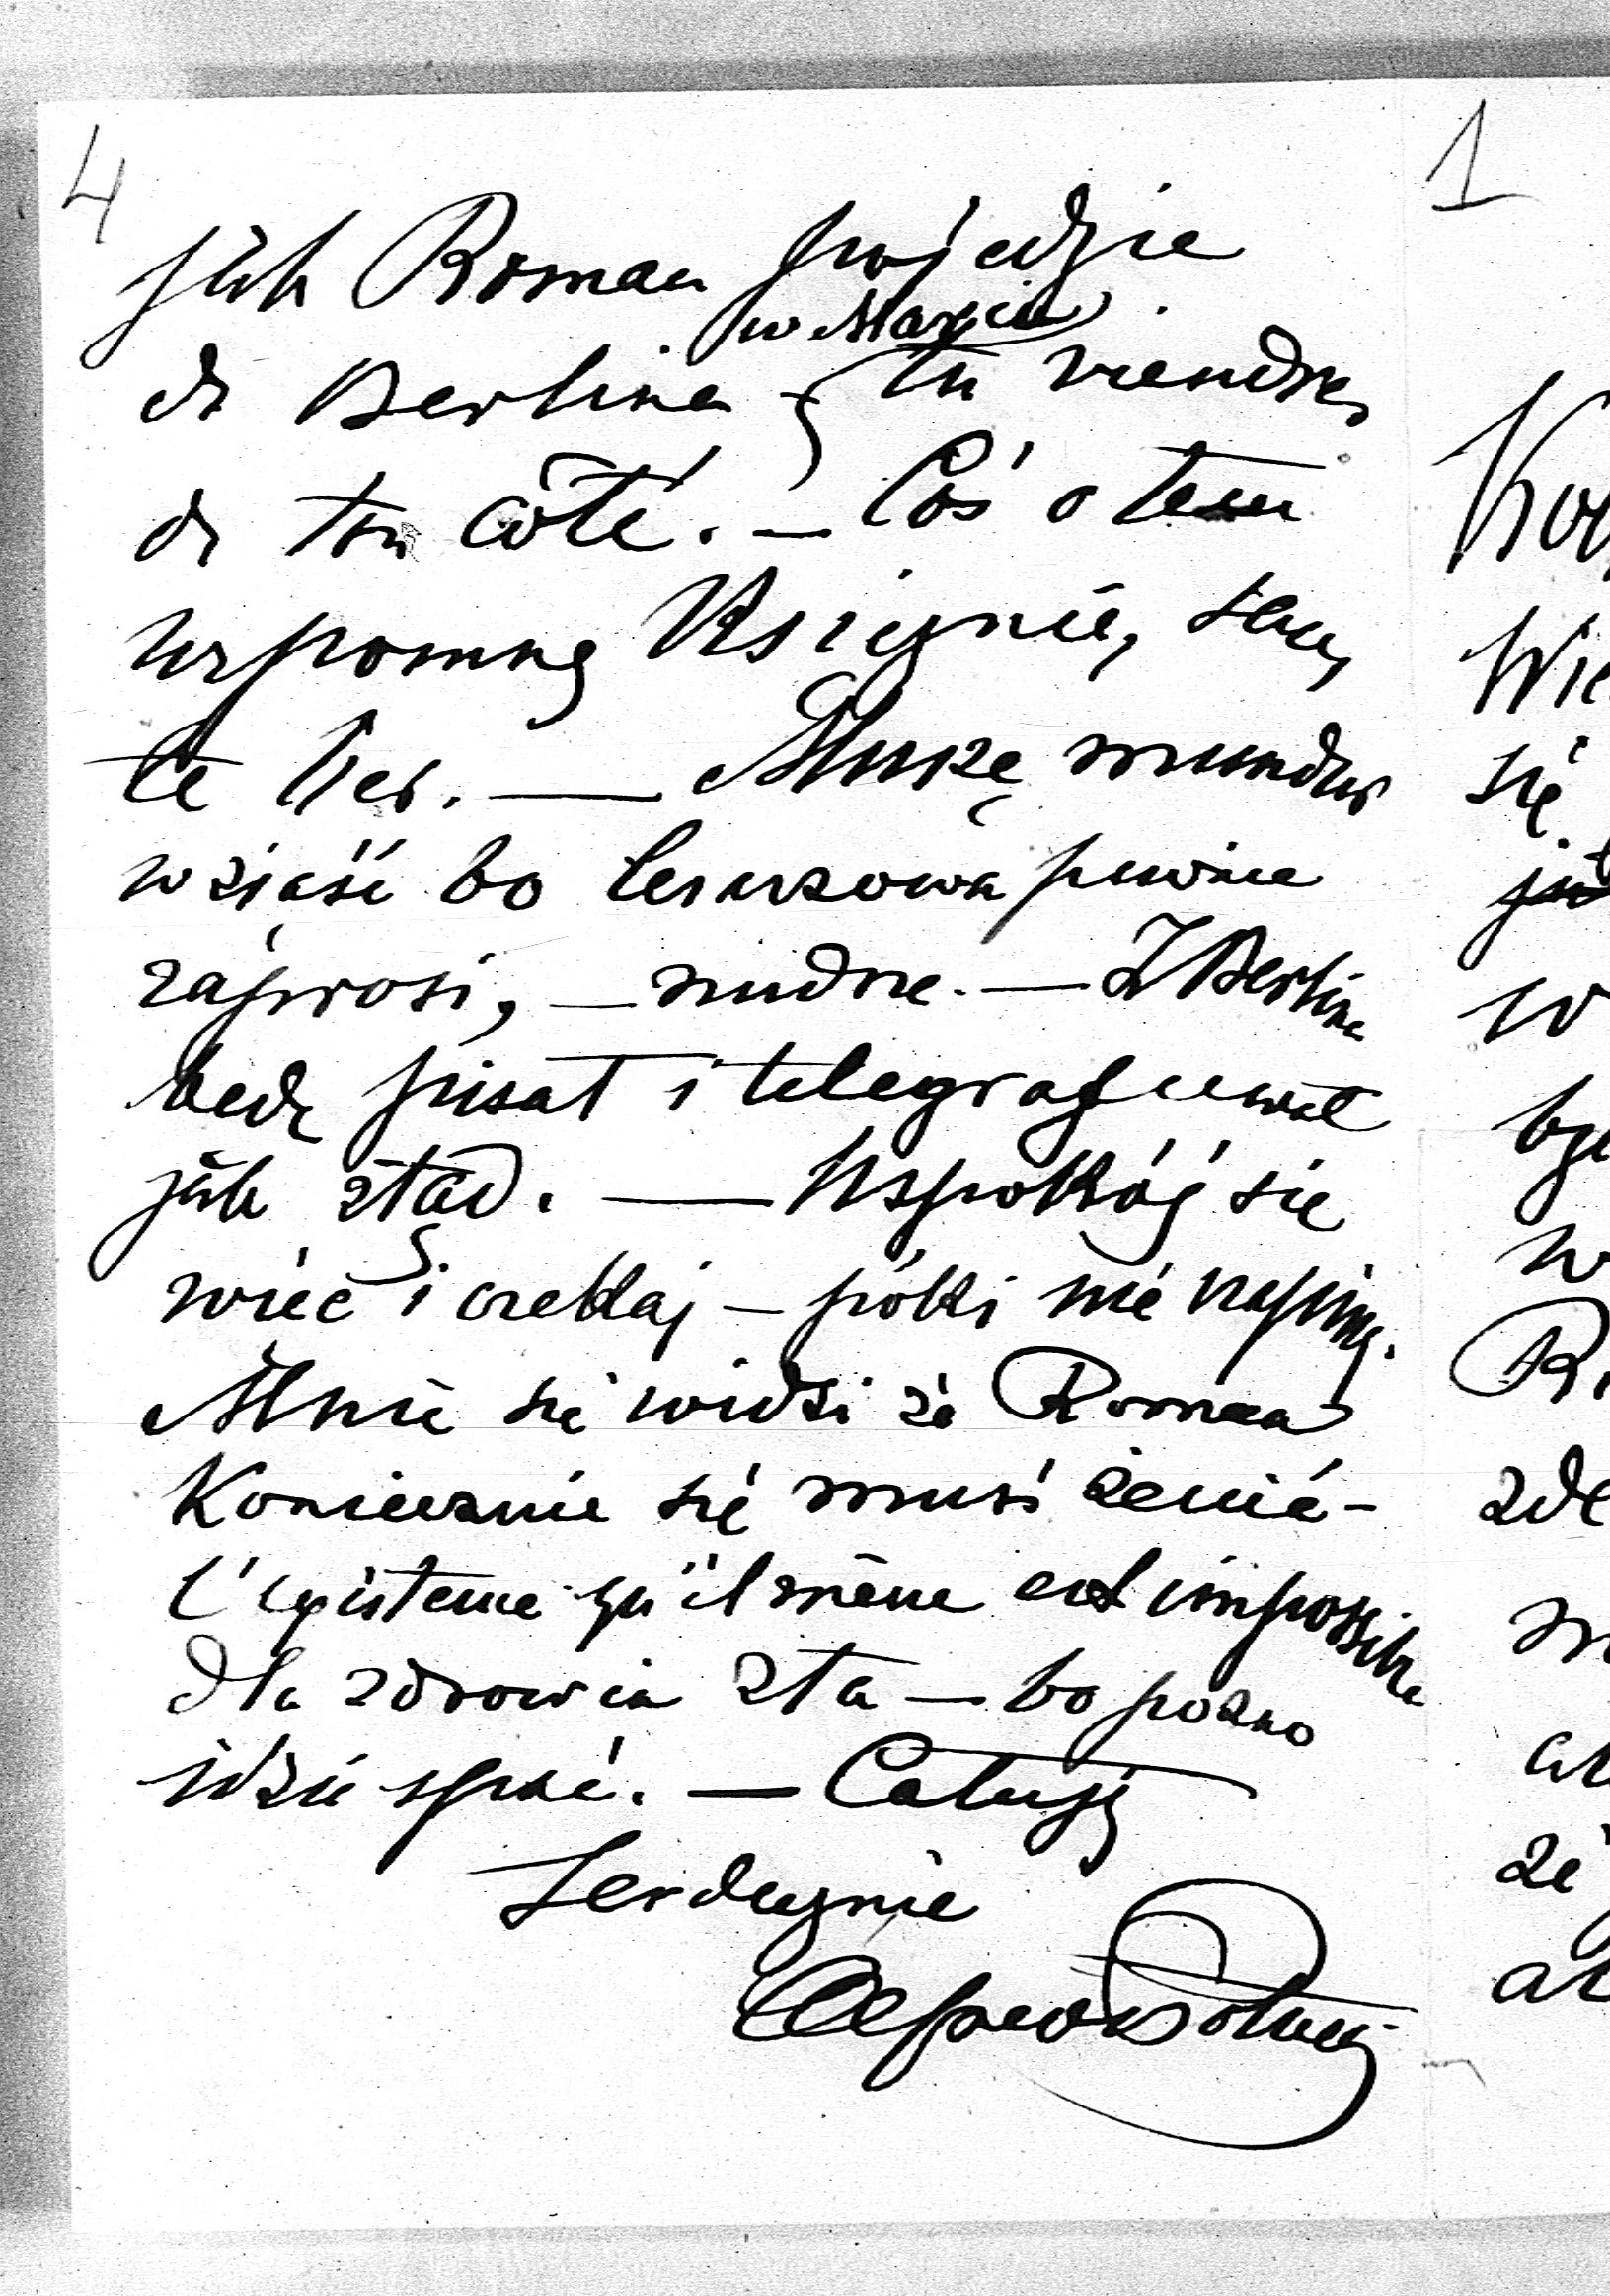 4
jak Roman pojedzie
w Marcu
do Berlina – tu viendras
de ton côté. – Coś o tem
wspomnę Księżnie, sans
te lier. — Muszę mundur
wziaść bo Cesarzowa pewnie
zaprosi, – nudne. — Z Berlina
będę pisał i telegrafował
jak ztąd. — Uspokój się
więc i czekaj – póki nie napiszę.
Mnie się widzi że Roman
Koniecznie się musi żenić –
l'existence qu'il mène est impossible
dla zdrowia zła — bo pozno
idzie spać. — Całuję
Serdecznie
Alfred Potocki
1
Wie
się
w
R
zde
że